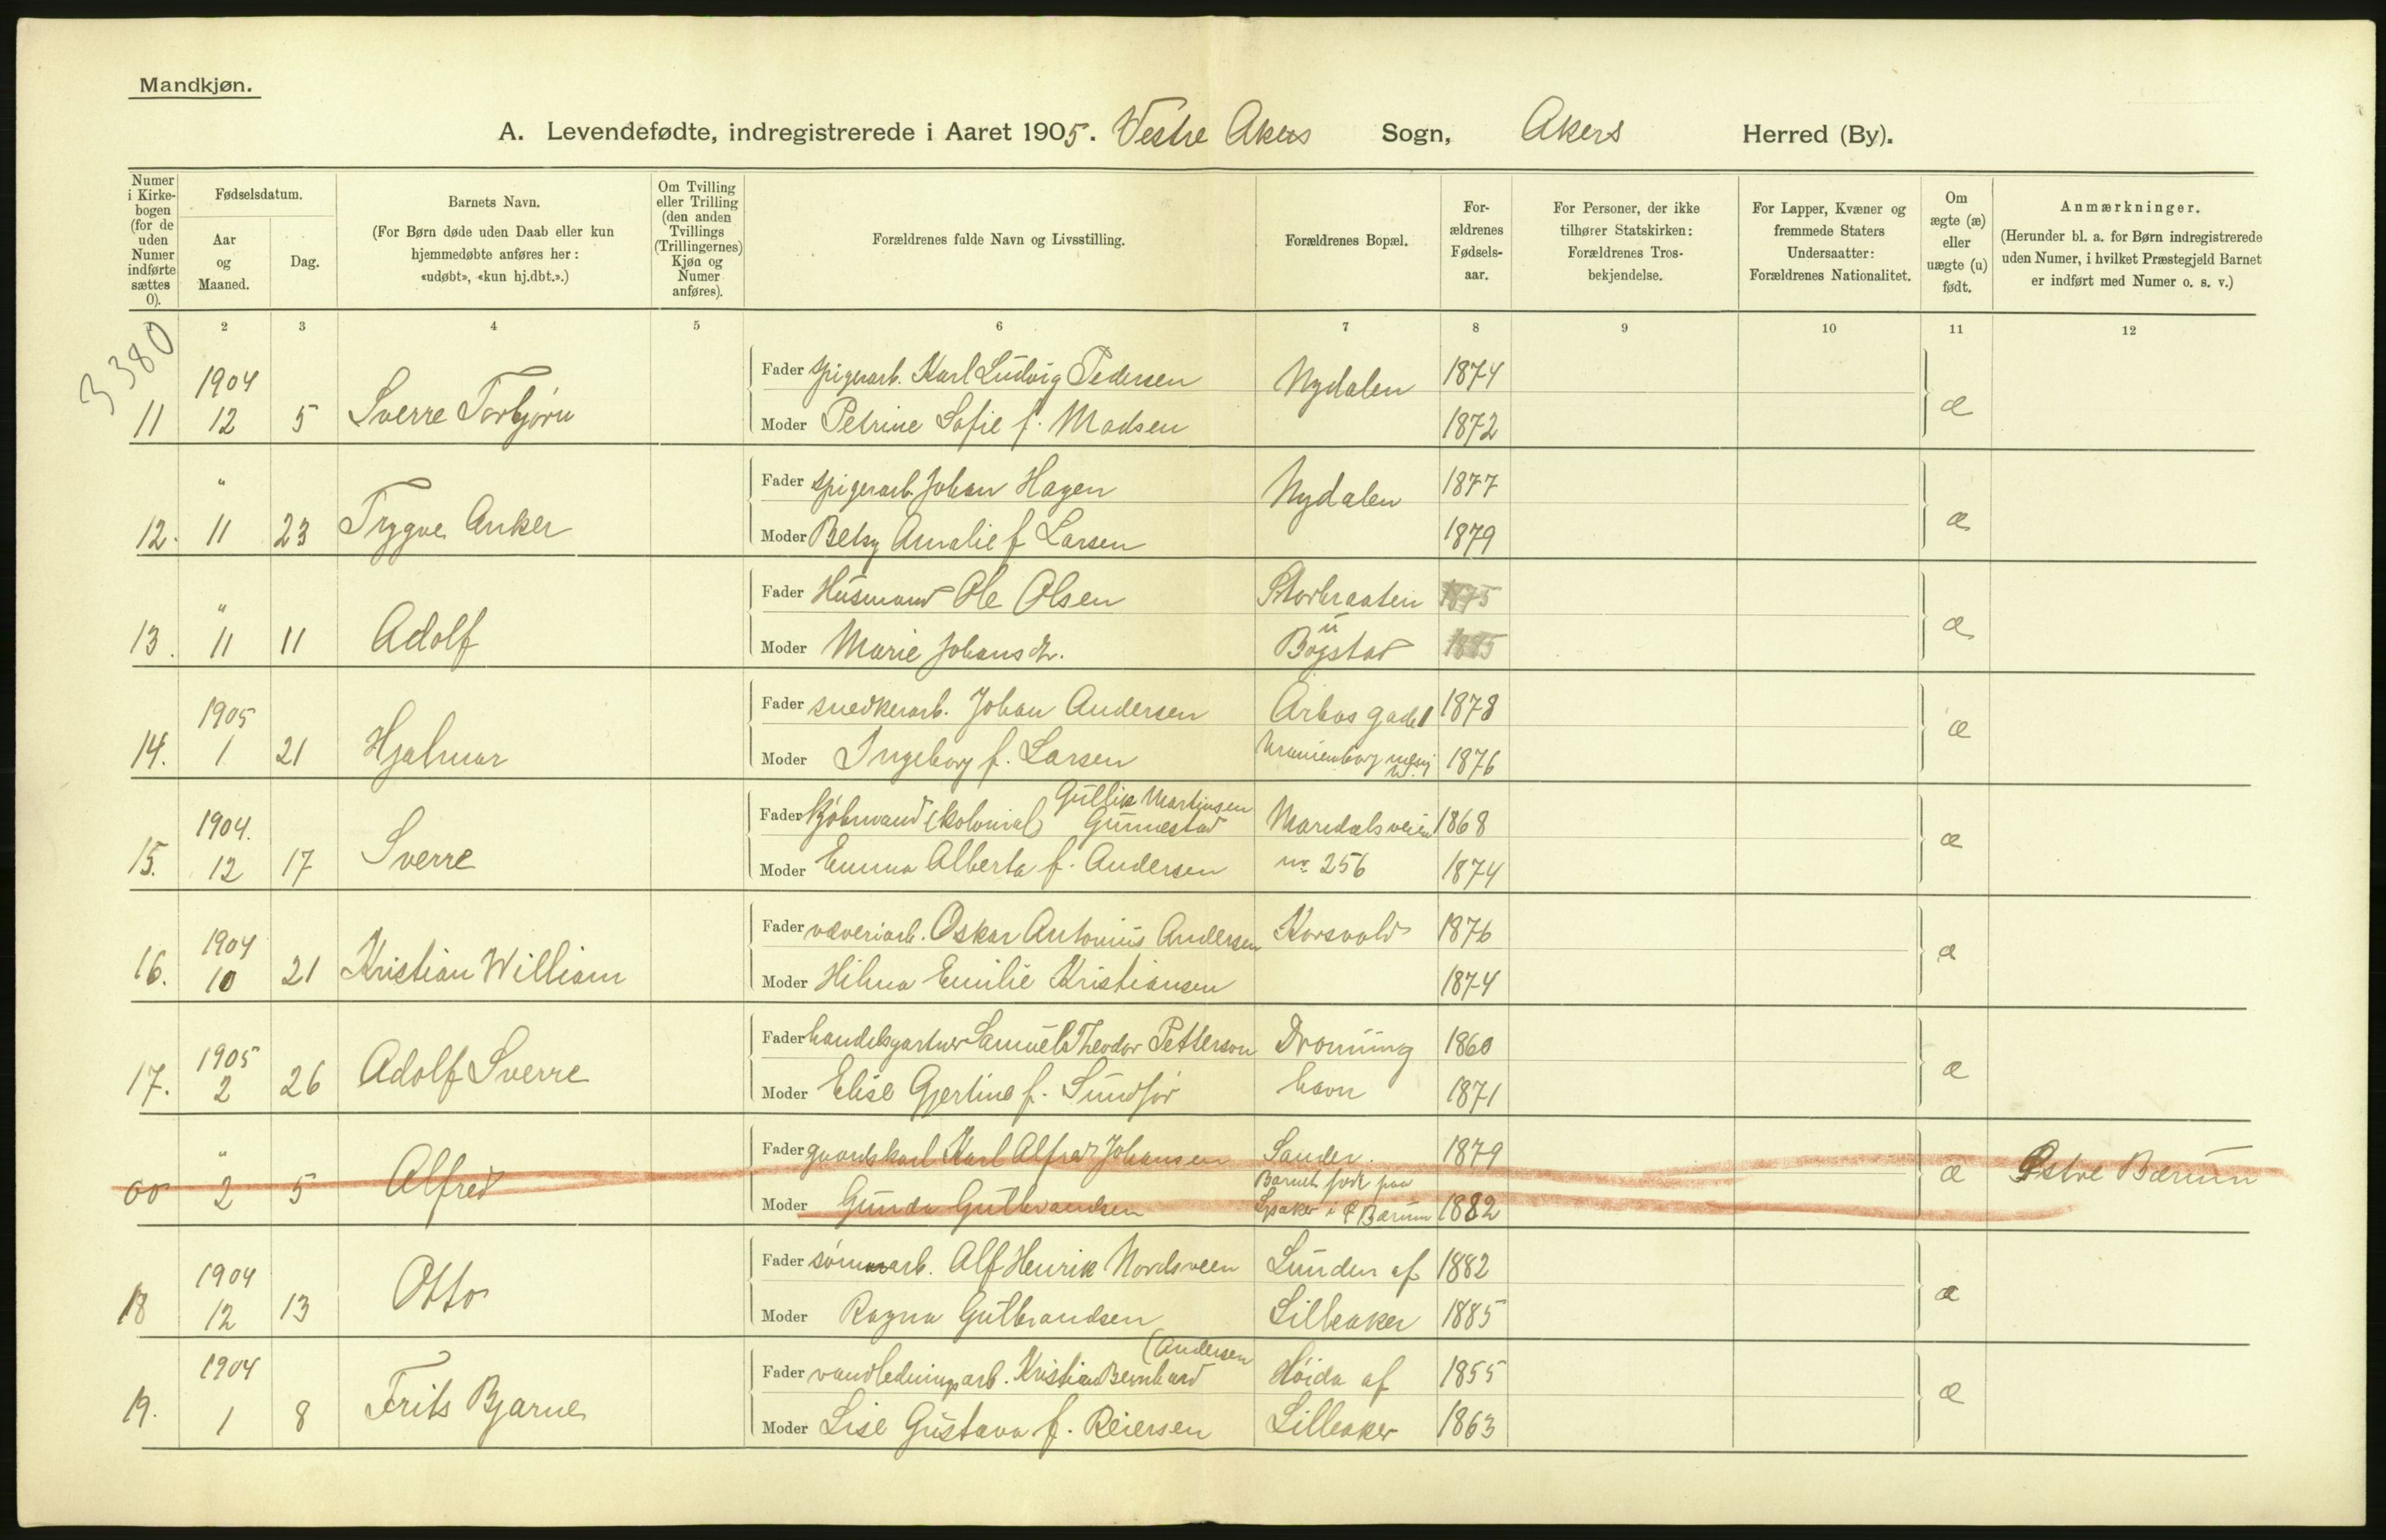 Mandkjøn.
A. Levendefødte, indregistrerede i Aaret 1905. Vestre Akers Sogn, Akers Herred (By).
Numer i Kirkebogen (for de uden Numer indførte sættes 0).
Fødselsdatum.
Aar og Maaned.
Dag.
Barnets Navn.
(For Børn døde uden Daab eller kun hjemmedøbte anføres her: «udøbt», «kun hj.dbt.».)
Om Tvilling eller Trilling (den anden Tvillings (Trillingernes) Kjøn og Numer anføres).
Forældrenes fulde Navn og Livsstilling.
Forældrenes Bopæl.
Forældrenes Fødselsaar.
For Personer, der ikke tilhører Statskirken: Forældrenes Trosbekjendelse.
For Lapper, Kvæner og fremmede Staters Undersaatter: Forældrenes Nationalitet.
Om ægte (æ) eller uægte (u) født.
Anmærkninger.
(Herunder bl. a. for Børn indregistrerede uden Numer, i hvilket Præstegjeld Barnet er indført med Numer o. s. v.)
2 3 4 5 6 7 8 9 10 11 12
3380
1904 Fader spigerarb. Karl Ludvig Pedersen Nydalen 1874
11 12 5 Sverre Torbjørn Moder Petrine Sofie f. Madsen 1872 æ
" Fader spigerarb. Johan Hagen Nydalen 1877
12. 11 23 Trygve Anker Moder Betsy Amalie f Larsen 1879 æ
" Fader Husmand Ole Olsen Storbraaten 1875
13. 11 11 Adolf Moder Marie Johans dt. u Bogstad 1885 æ
1905 Fader snedkerarb. Johan Andersen Arbos gade 1 1878
14. 1 21 Hjalmar Moder Ingeborg f. Larsen Uranienborg 1876 æ
1904. Fader Kjøbmand (kolonial) Gullik Martinsen Gunnestad Maridalsveien 1868
15. 12 17 Sverre Moder Emma Alberta f. Andersen nr 256 1874 æ
1904 Fader væveriarb. Oskar Antonius Andersen Korsvold 1876
16. 10 21 Kristian William Moder Hilma Emilie Kristiansen 1874 æ
1905 Fader handelsgartner Samuel Theodor Petterson Dronning 1860
17. 2 26 Adolf Sverre Moder Elise Gjertine f. Sundfør havn 1871 æ
" Fader gaardskarl Karl Alfred Johansen Sander. 1879
00 2 5 Alfred Moder Gunda Gulbrandsen Barnet født paa Lysaker i Ø Bærum 1882 æ Østre Bærum
1904 Fader sømarb. Alf Henrik Nordsveen Lunden af 1882
18 12 13 Otto Moder Ragna Gulbrandsen Lilleaker 1885 æ
1904 Fader vandledningsarb. Kristian Bernhard (Andersen Høida af 1855
19. 1 8 Frits Bjarne Moder Lise Gustava f. Reiersen Lilleaker 1863 æ